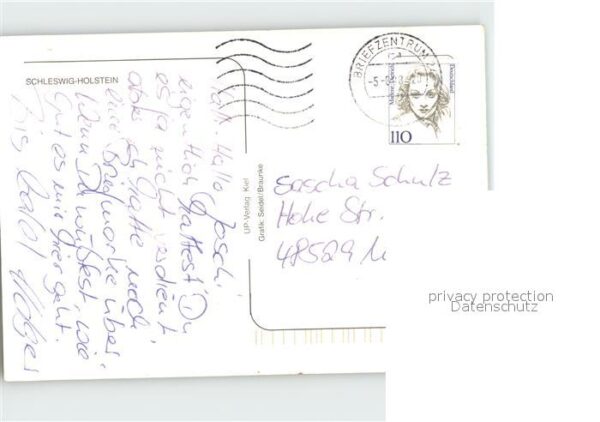 SCHLESWIG-HOLSTEIN
Hallo Joschi,
eigentlich hattest Du
es ja nicht verdient,
aber ich hatte noch
eine Briefmarke über.
Wenn Du wüßtest, wie
gut es mir hier geht.
Bis bald Holger
UP-Verlag Kiel
Grafik: Seidel/Braunke
BRIEFZENTRUM
Deutschland
Marlene Dietrich
110
Sascha Schulz
Hohe Str.
48529
privacy protection
Datenschutz